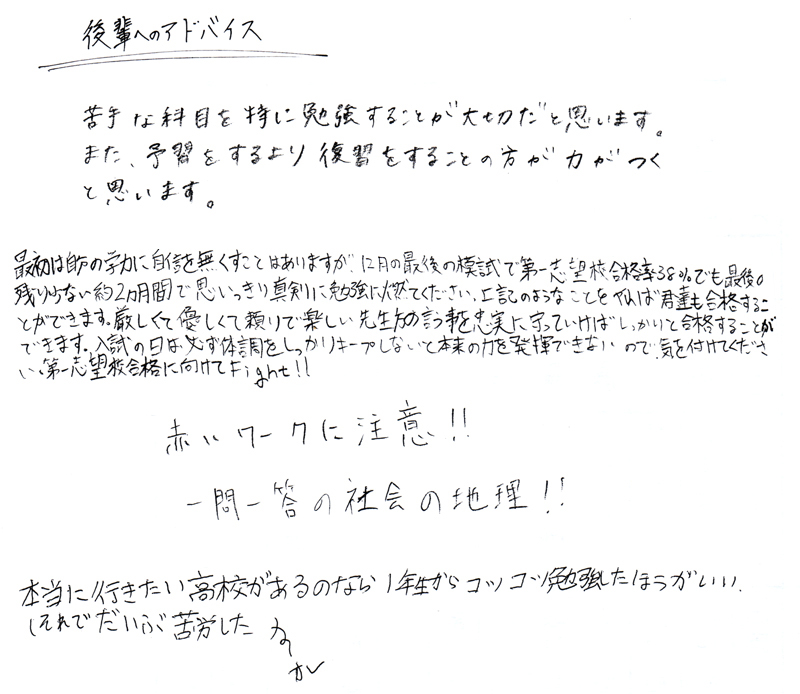 後輩へのアドバイス
苦手な科目を特に勉強することが大切だと思います。
また、予習をするより復習をすることの方が力がつく
と思います。
最初は自分の学力に自信を無くすことはありますが、12月の最後の模試で第一志望校合格率38%でも最後の
残り少ない約2カ月間で思いっきり真剣に勉強に燃えてください。上記のようなことをすれば君達も合格するこ
とができます。厳しくて優しくて頼りで楽しい先生方の言う事を忠実に守っていけばしっかりと合格することが
できます。入試の日は必ず体調をしっかりキープしないと本来の力を発揮できないので、気を付けてくださ
い。第一志望校合格に向けてFight!!
赤いワークに注意!!
一問一答の社会の地理!!
本当に行きたい高校があるのなら1年生からコツコツ勉強したほうがいい。
(それでだいぶ苦労した